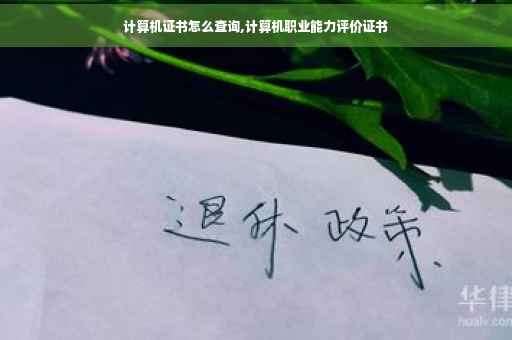 计算机证书怎么查询,计算机职业能力评价证书
退休 政策
华律
hualv.com